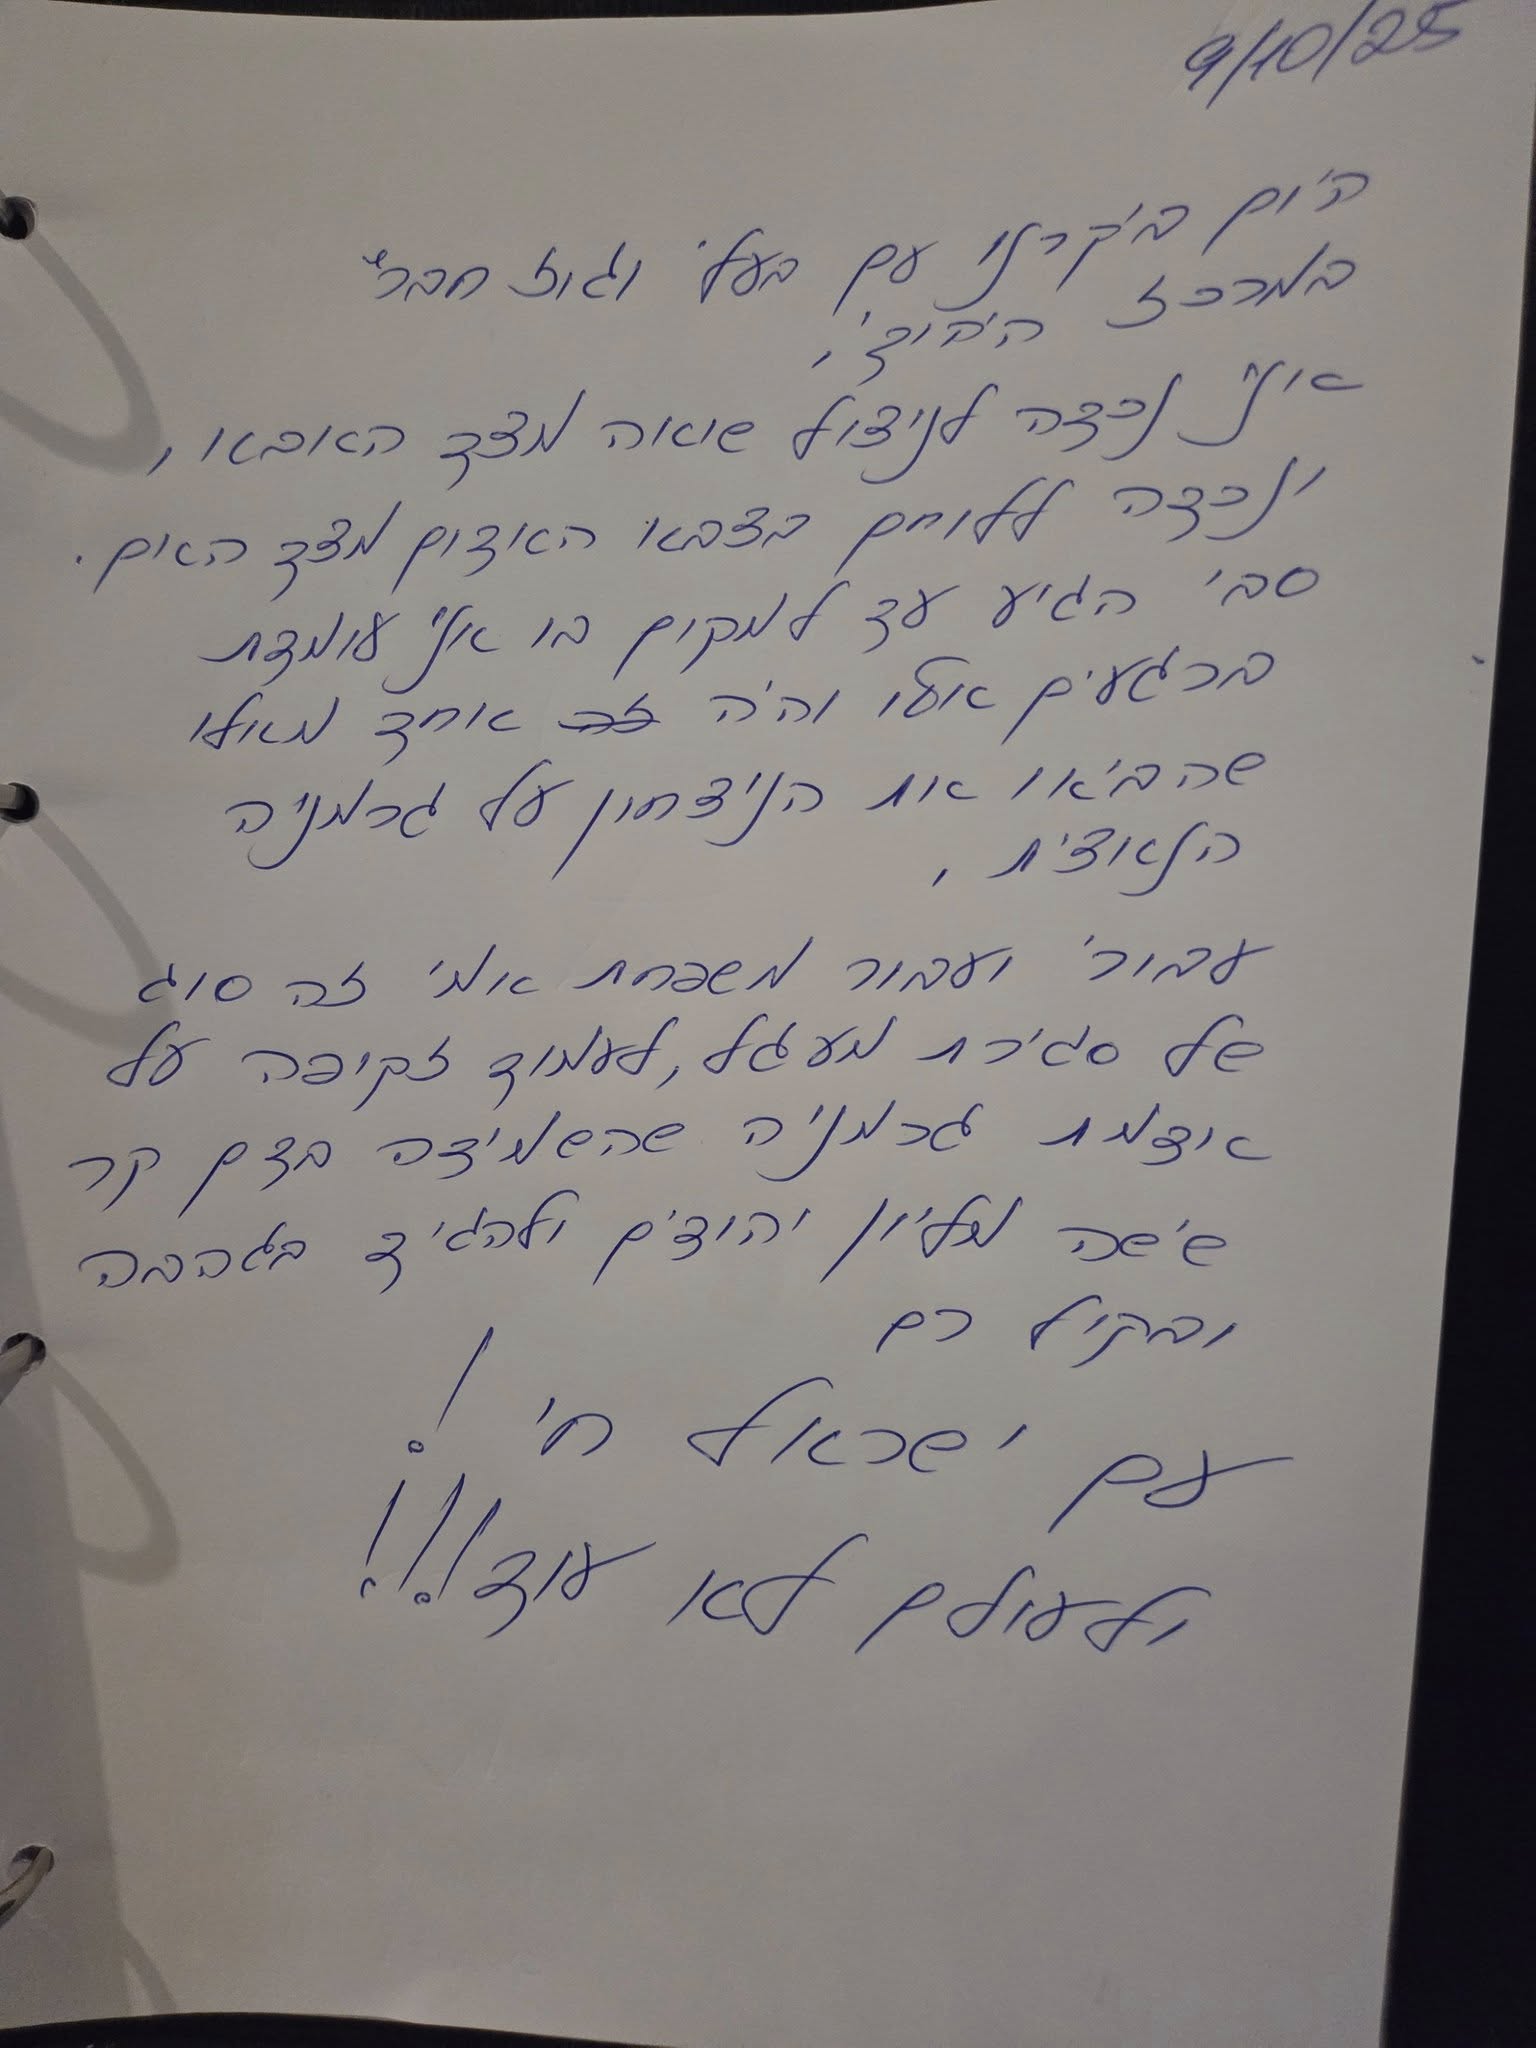 9/10/25
היום ביקרנו עם בעלי וגוז חברי
במרכז היהודי,
אני נכדה לניצול שואה מצד האבא,
ונכדה ללוחם בצבא האדום מצד האים.
סבי הגיע עד למקום בו אני עומדת
ברגעים אלו והיה זה אחד מאילו
שהביאו את הניצחון על גרמניה
הנאצית,
עבורי ועבור משפחת אמי זה סוג
של סגירת מעגל, לעמוד זקופה על
אדמת גרמניה שהשמידה בדם קר
שישה מליון יהודים ולהגיד בגהבה
ובקול רם
עם ישראל חי!
ולעולם לא עוד!!!